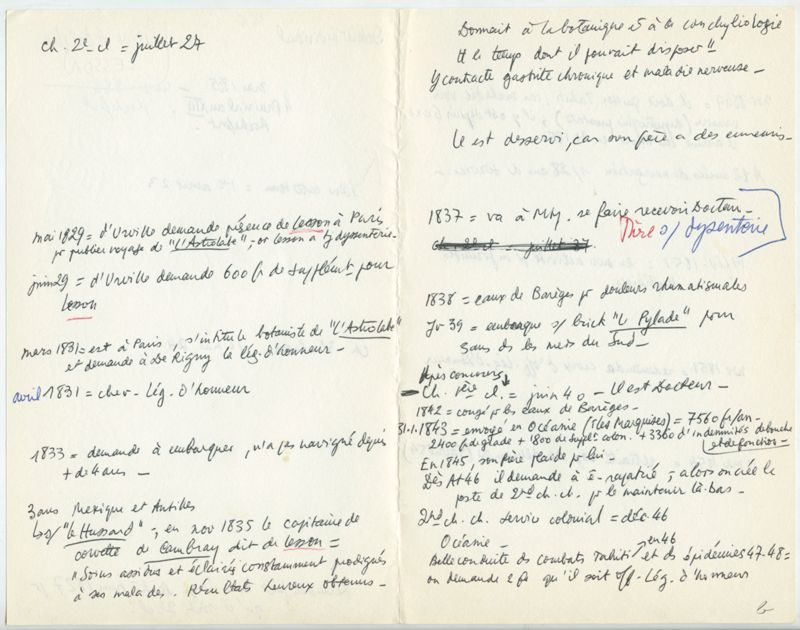 ch. 2e cl = juillet 27
mai 1829 = d'Urville demande présence de Lesson à Paris
pr publier voyage de "L'Astrolabe", or Lesson a tj dysenterie
juin 29 = d'Urville demande 600 fr de supplément pour
Lesson
mars 1831 = est à Paris s'intitule botaniste de "L'Astrolabe"
et demande à De Rigny la lég. d'honneur -
avril 1831 = chev. Lég. d'honneur
1833 = demande à embarquer, n'a pas navigué depuis
+ de 4 ans -
3 ans Mexique et Antilles
s/ "le Hussard" -, en nov 1835 le capitaine de
corvette de Cambray dit de Lesson =
"Soins assidus et éclairés constamment prodigués
à ses malades. Résultats heureux obtenus -
Donnait à la botanique et à la conchyliologie
tt le temps dont il pouvait disposer"
Y contracte gastrite chronique et maladie nerveuse -
Il est desservi, car son frère a des ennemis -
1837 = va à Mtp. se faire recevoir Docteur -
Thèse s/ dysenterie
ch 2e cl - juillet 27
1838 = eaux de Barèges pr douleurs rhumatismales
Jr 39 = embarque s/ brick "Le Pylade" pour
3 ans ds les mers du Sud -
Après concours
- Ch. 1ère cl. = juin 40 - Il est Docteur -
1842 = congé pr les eaux de Barèges -
31.1.1843 = envoyé en Océanie (Iles Marquises) = 7560 fr/an -
2400 fr de grade + 1800 de suplt colon. + 3360 d'indemnités de bouche
et de fonction -
En 1845, son frère plaide pr lui
Dès At 46 il demande à ê. rapatrié -, alors on crée le
poste de 2nd ch. ch. pr le maintenir là-bas -
2nd ch. ch. service colonial = déc 46
Océanie -
Belle conduite ds combats Tahiti en 46 et ds épidémies 47-48 =
on demande 2 fs qu'il soit off. Lég. d'honneur